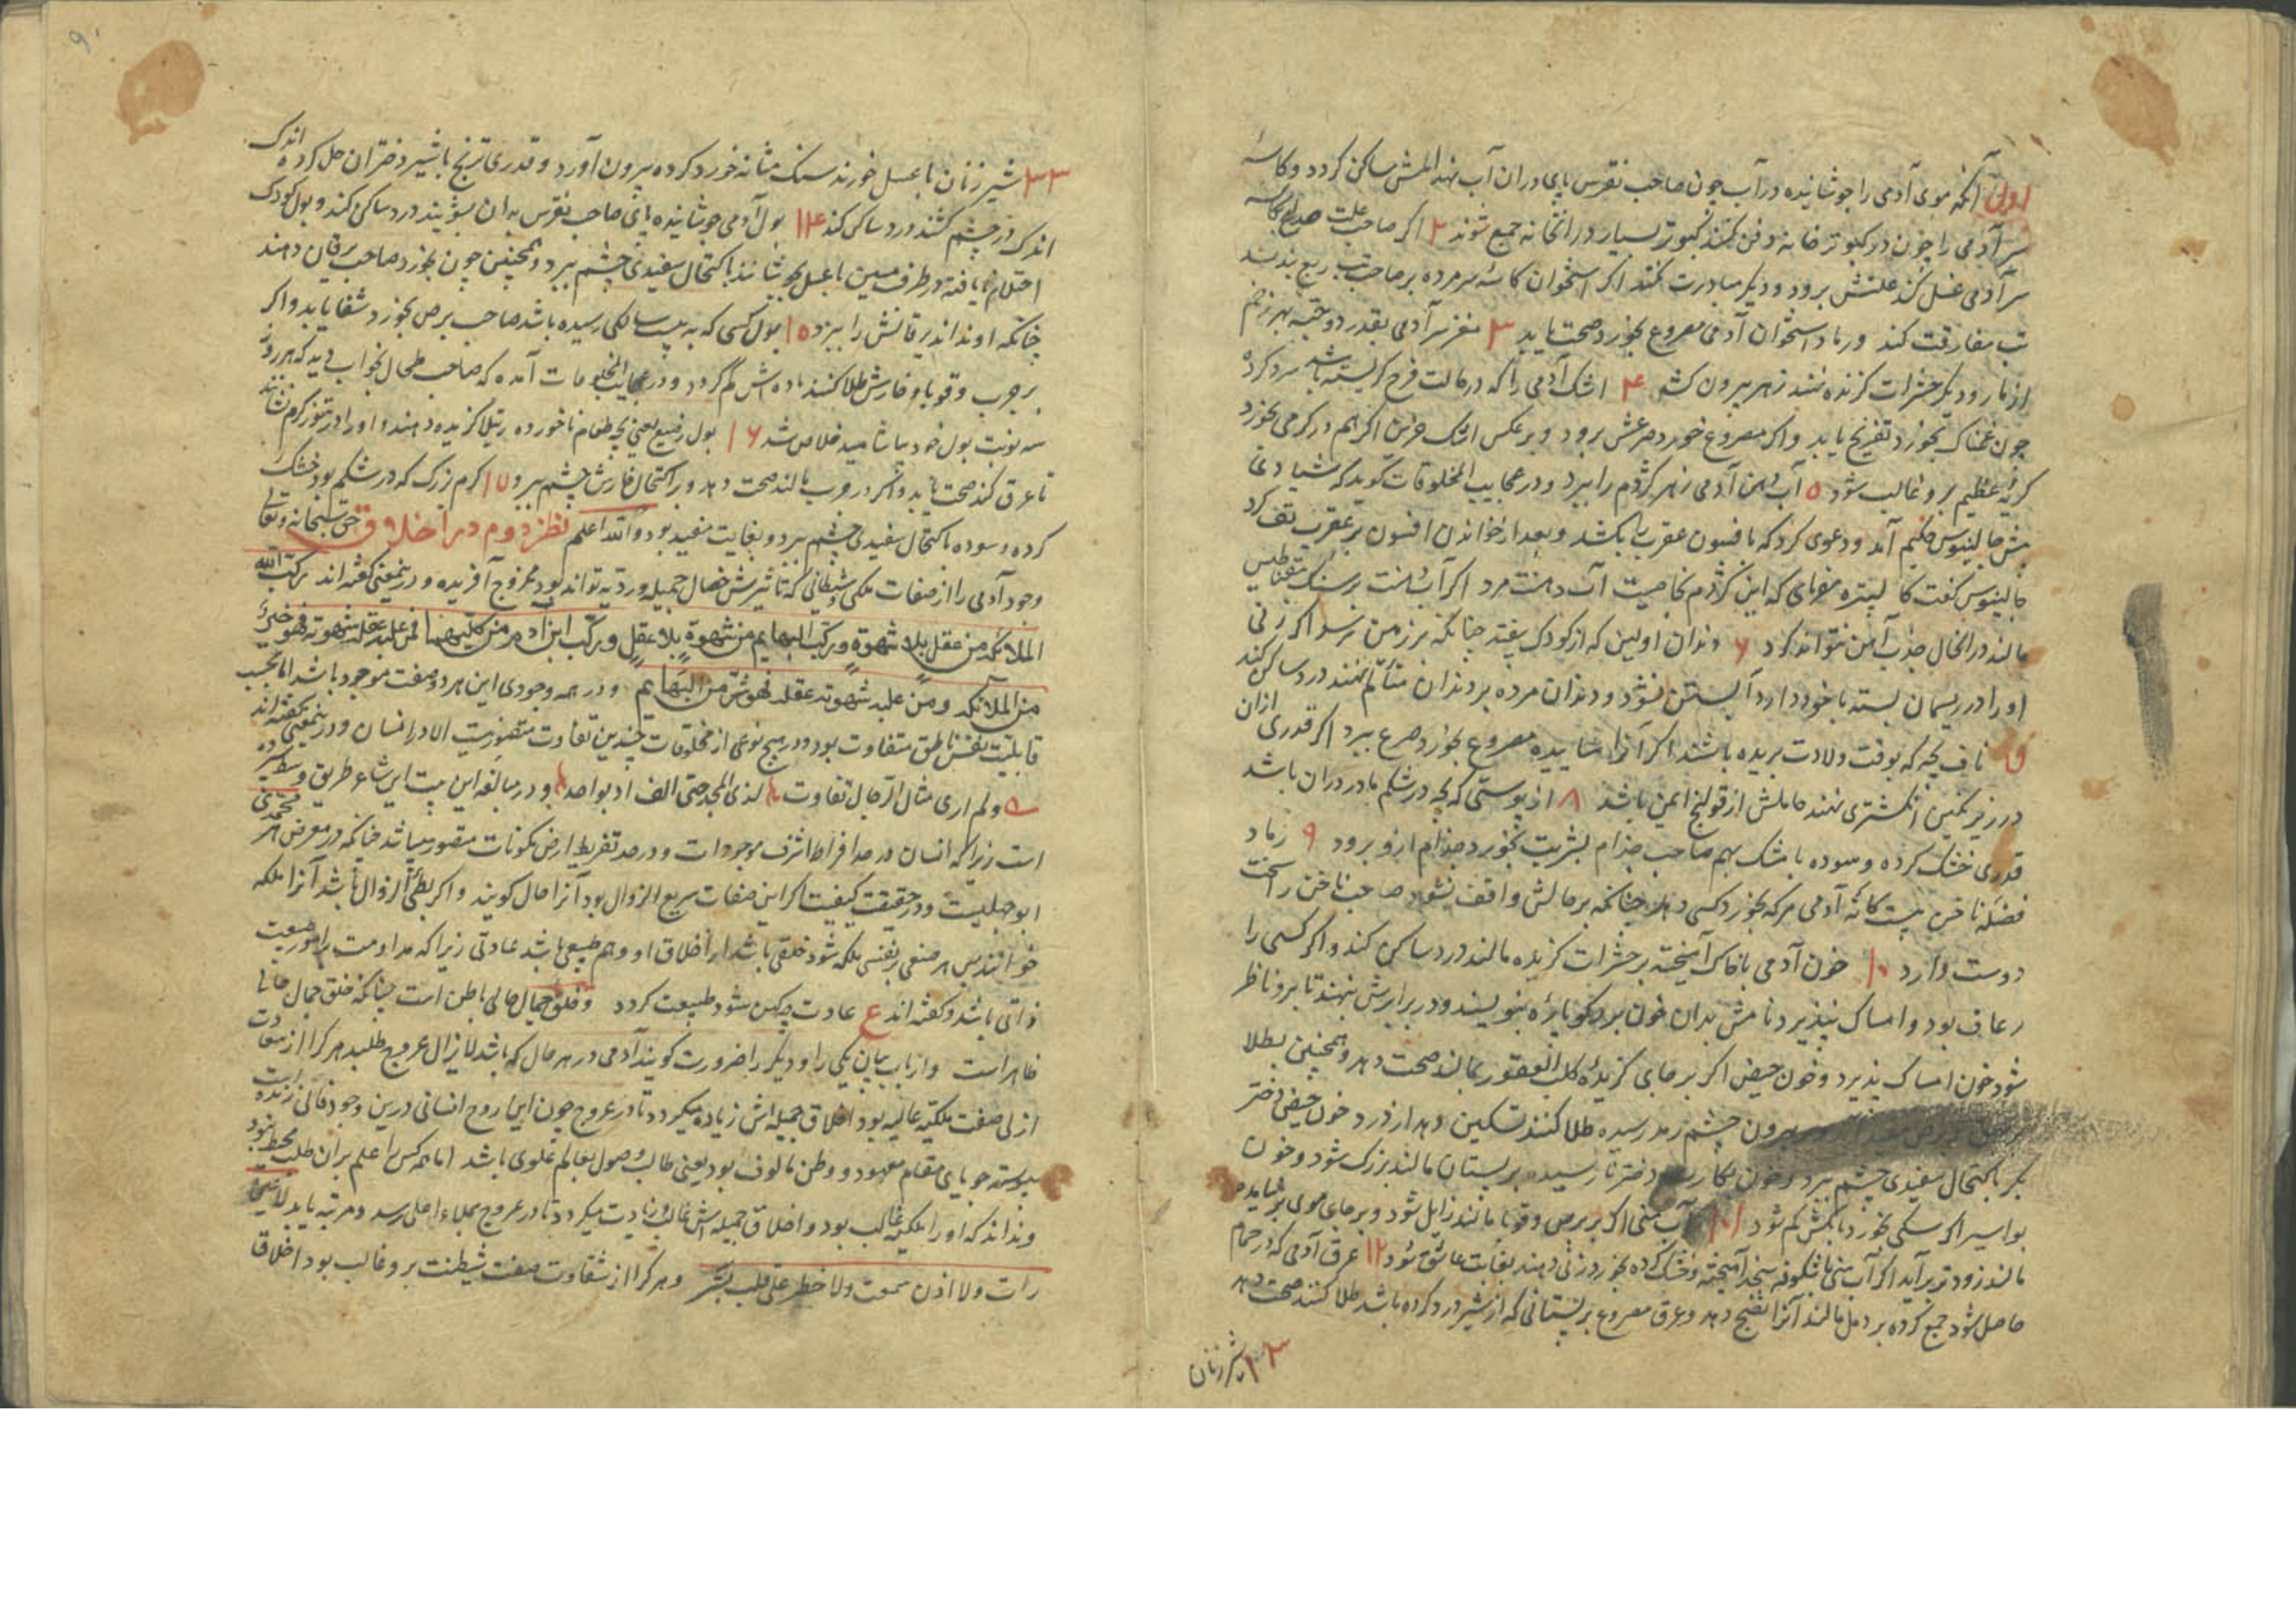 اول آنکه موی آدمی را جوشانیده در آب چون صاحب نقرس پای در ان آب نهد المش ساکن کردد و کاسهٔ
سر آدمی را چون در کبوتر خانه دفن کنند کبوتر بسیار در انخانه جمع شوند ۲ اکر صاحب علت صداع بکاسه
سر آدمی غسل کند علتش برود و دیگر مبادرت نکند اکر استخوان کاسهٔ سر مرده بر صاحب تب ربع بندند
تب مفارقت کند و رماد استخوان آدمی مصروع بخورد صحت یابد ۳ مغز سر آدمی بقدر دو حبه بهر زخم
از مار و دیگر حشرات کزنده نهند زهر بیرون کشد ۴ اشک آدمی را که در حالت فرح کریسته باشد سرد کرده
چون غمناک بخورد تفریح یابد و اکر مصروع خورد صرعش برود و برعکس اشک حزن اکر هم در کرمی بخورد
کریهٔ عظیم برو غالب شود ۵ آب دهن آدمی زهر کژدم را ببرد و در عجایب المخلوقات کوید که شیادی
پیش جالینوس حکیم آمد و دعوی کرد که بافسون عقرب را بکشد و بعد از خواندن افسون بر عقرب تف کرد
جالینوس کفت که این کژدم بخاصیت آب دهنت مرد اکر آب دهنت بر سنک مقناطیس
مالند در الحال جذب آهن نتواند کرد ۶ دندان اولین که از کودک بیفتد چنانکه بر زمین نرسد اکر زنی
او را در ریسمان بسته با خود دارد آبستن نشود و دندان مرده بر دندان متألم نهند درد ساکن کند
۷ ناف بچه که بوقت ولادت بریده باشند اکر آنرا ساییده مصروع بخورد صرع ببرد اکر قدری ازان
در زیر نکین انکشتری نهند حاملش از قولنج ایمن باشد ۸ از پوستی که بچه در شکم مادر دران باشد
قدری خشک کرده و سوده با مشک بهم صاحب جذام بشربت بخورد جذام ازو برود ۹ رماد
فضلهٔ ناخن بیست کانهٔ آدمی هر که بخورد کسی دهد چنانکه بر حالش واقف نشود صاحب ناخن را سخت
دوست دارد ۱۰ خون آدمی با خاک آمیخته بر حشرات کزیده مالند درد ساکن کند و اکر کسی را
رعاف بود و امساک نپذیرد نامش بدان خون بر بنویسند و در برابرش بنهند تا برو ناظر
شود خون امساک پذیرد و خون حیض اکر بر جای کزیدهٔ کلب العقور بمالند صحت دهد و همچنین بطلا
بیرون چشم رمد رسیده طلا کنند تسکین دهد از درد خون حیض دختر
بکر باکتحال سفیدی چشم ببرد و خون بکارت دختر نارسیده بر پستان مالند بزرک نشود و خون
بواسیر اکر سکی بخورد بانکش کم شود ۱۱ آب منی اکر بر برص و قوبا مالند زایل شود و بر جای موی
مالند زودتر برآید اکر آب منی با شکوفه سنجد آمیخته و خشک کرده بخورد زنی دهند بغایت عاشق شود ۱۲ عرق آدمی که در حمام
حاصل شود جمع کرده بر دمل مالند آنرا نضج دهد و عرق مصروع بر پستانی که از شیر درد کرده باشد طلا کنند صحت دهد
۱۳ شیر زنان
شیر زنان با عسل خورند سنک مثانه خورد کرده بیرون آورد و قدری ترنج با شیر دختران حل کرده اندک
اندک در چشم کشند درد ساکن کند ۱۴ بول آدمی جوشانیده پای صاحب نقرس به ان بشویند درد ساکن کند و بول کودک
احتلام نایافته در ظرف مسین با عسل بجوشانند باکتحال سفیدی چشم ببرد و همچنین چون بخورد صاحب یرقان دهند
چنانکه او نداند یرقانش را ببرد ۱۵ بول کسی که به بیست سالکی رسیده باشد صاحب برص بخورد شفا یابد و اکر
بر جرب و قوبا و خارش طلا کنند ماده اش کم کردد و در عجایب المخلوقات آمده که صاحب طحال بخواب دید که هر روز
سه نوبت بول خود بیاشامید خلاص شد ۱۶ بول رضیع یعنی بچه طعام ناخورده رتیلا کزیده دهند و او را در تنور کرم نشانند
تا عرق کند صحت یابد و اکر در جرب مالند صحت دهد و باکتحال خارش چشم ببرد ۱۷ کرم بزرک که در شکم بود خشک
کرده و سوده باکتحال سفیدی چشم ببرد و بغایت مفید بود و الله اعلم نظر دوم در اخلاق حق سبحانه و تعالی
وجود آدمی را از صفات ملکی و شیطانی که تاثیرش خصال جمیله و ردیه تواند بود ممزوج آفریده و در ینمعنی کفته اند رکب الله
الملائکه من عقل بلا شهوة و رکب البهایم من شهوة بلا عقل و رکب ابن آدم من کلیهما فمن غلب عقله شهوته فهو خیر
من الملآئکه و من غلب شهوته عقله فهو شر من البهایم و در همه وجودی این هر دو صفت موجود باشد اما بحسب
قابلیت نفس ناطق متفاوت بود و در هیچ نوعی از مخلوقات چندین تفاوت متصور نیست الا در انسان و در ینمعنی کفته اند
و لم اری مثال الرجال تفاوت لدی المجد حتی الف اد بواحد و در مبالغه این بیت این شاعر طریق وسط سپرده
است زیرا که انسان در حد افراط اشرف موجودات و در حد تفریط ارض مکونات متصور میباشد چنانکه در معرض هر محمدی
ابو جهلیست و در حقیقت کیفیت اکر این صفات سریع الزوال بود آنرا حال کویند و اکر بطئ الزوال باشد آنرا ملکه
خوانند پس هر صنفی بر نفسی ملکه شود خلقی باشد از اخلاق او و هم طبیعی باشد عادتی زیرا که مداومت بر امور طبیعت
ذاتی باشد و کفته اند ع عادت چو کهن شود طبیعت کردد و خلق جمال حال باطن است چنانکه خلق جمال حال
ظاهر است و از باب بیان یکی را و دیگر را ضرورت کویند آدمی در هر حال که باشد لا یزال عروج طلبد هر کرا از سعادت
ازلی صفت ملکیه غالب بود اخلاق جمیله اش زیاده میکردد تا در عروج چون این روح انسانی درین وجود فانی زنده است
پیوسته جویای مقام معهود و وطن مالوف بود یعنی طالب وصول بعالم علوی باشد اما همه کس را علم بران طلب محیط نبود
و نداند که او را ملکیه غالب بود و اخلاق جمیله اش غالب و زیادت میکردد تا در عروج بملاء اعلی رسد و مرتبه یابد لا عین
رات و لا اذن سمعت و لا خطر علی قلب بشر و هر کرا از شقاوت صفت شیطنت برو غالب بود اخلاق